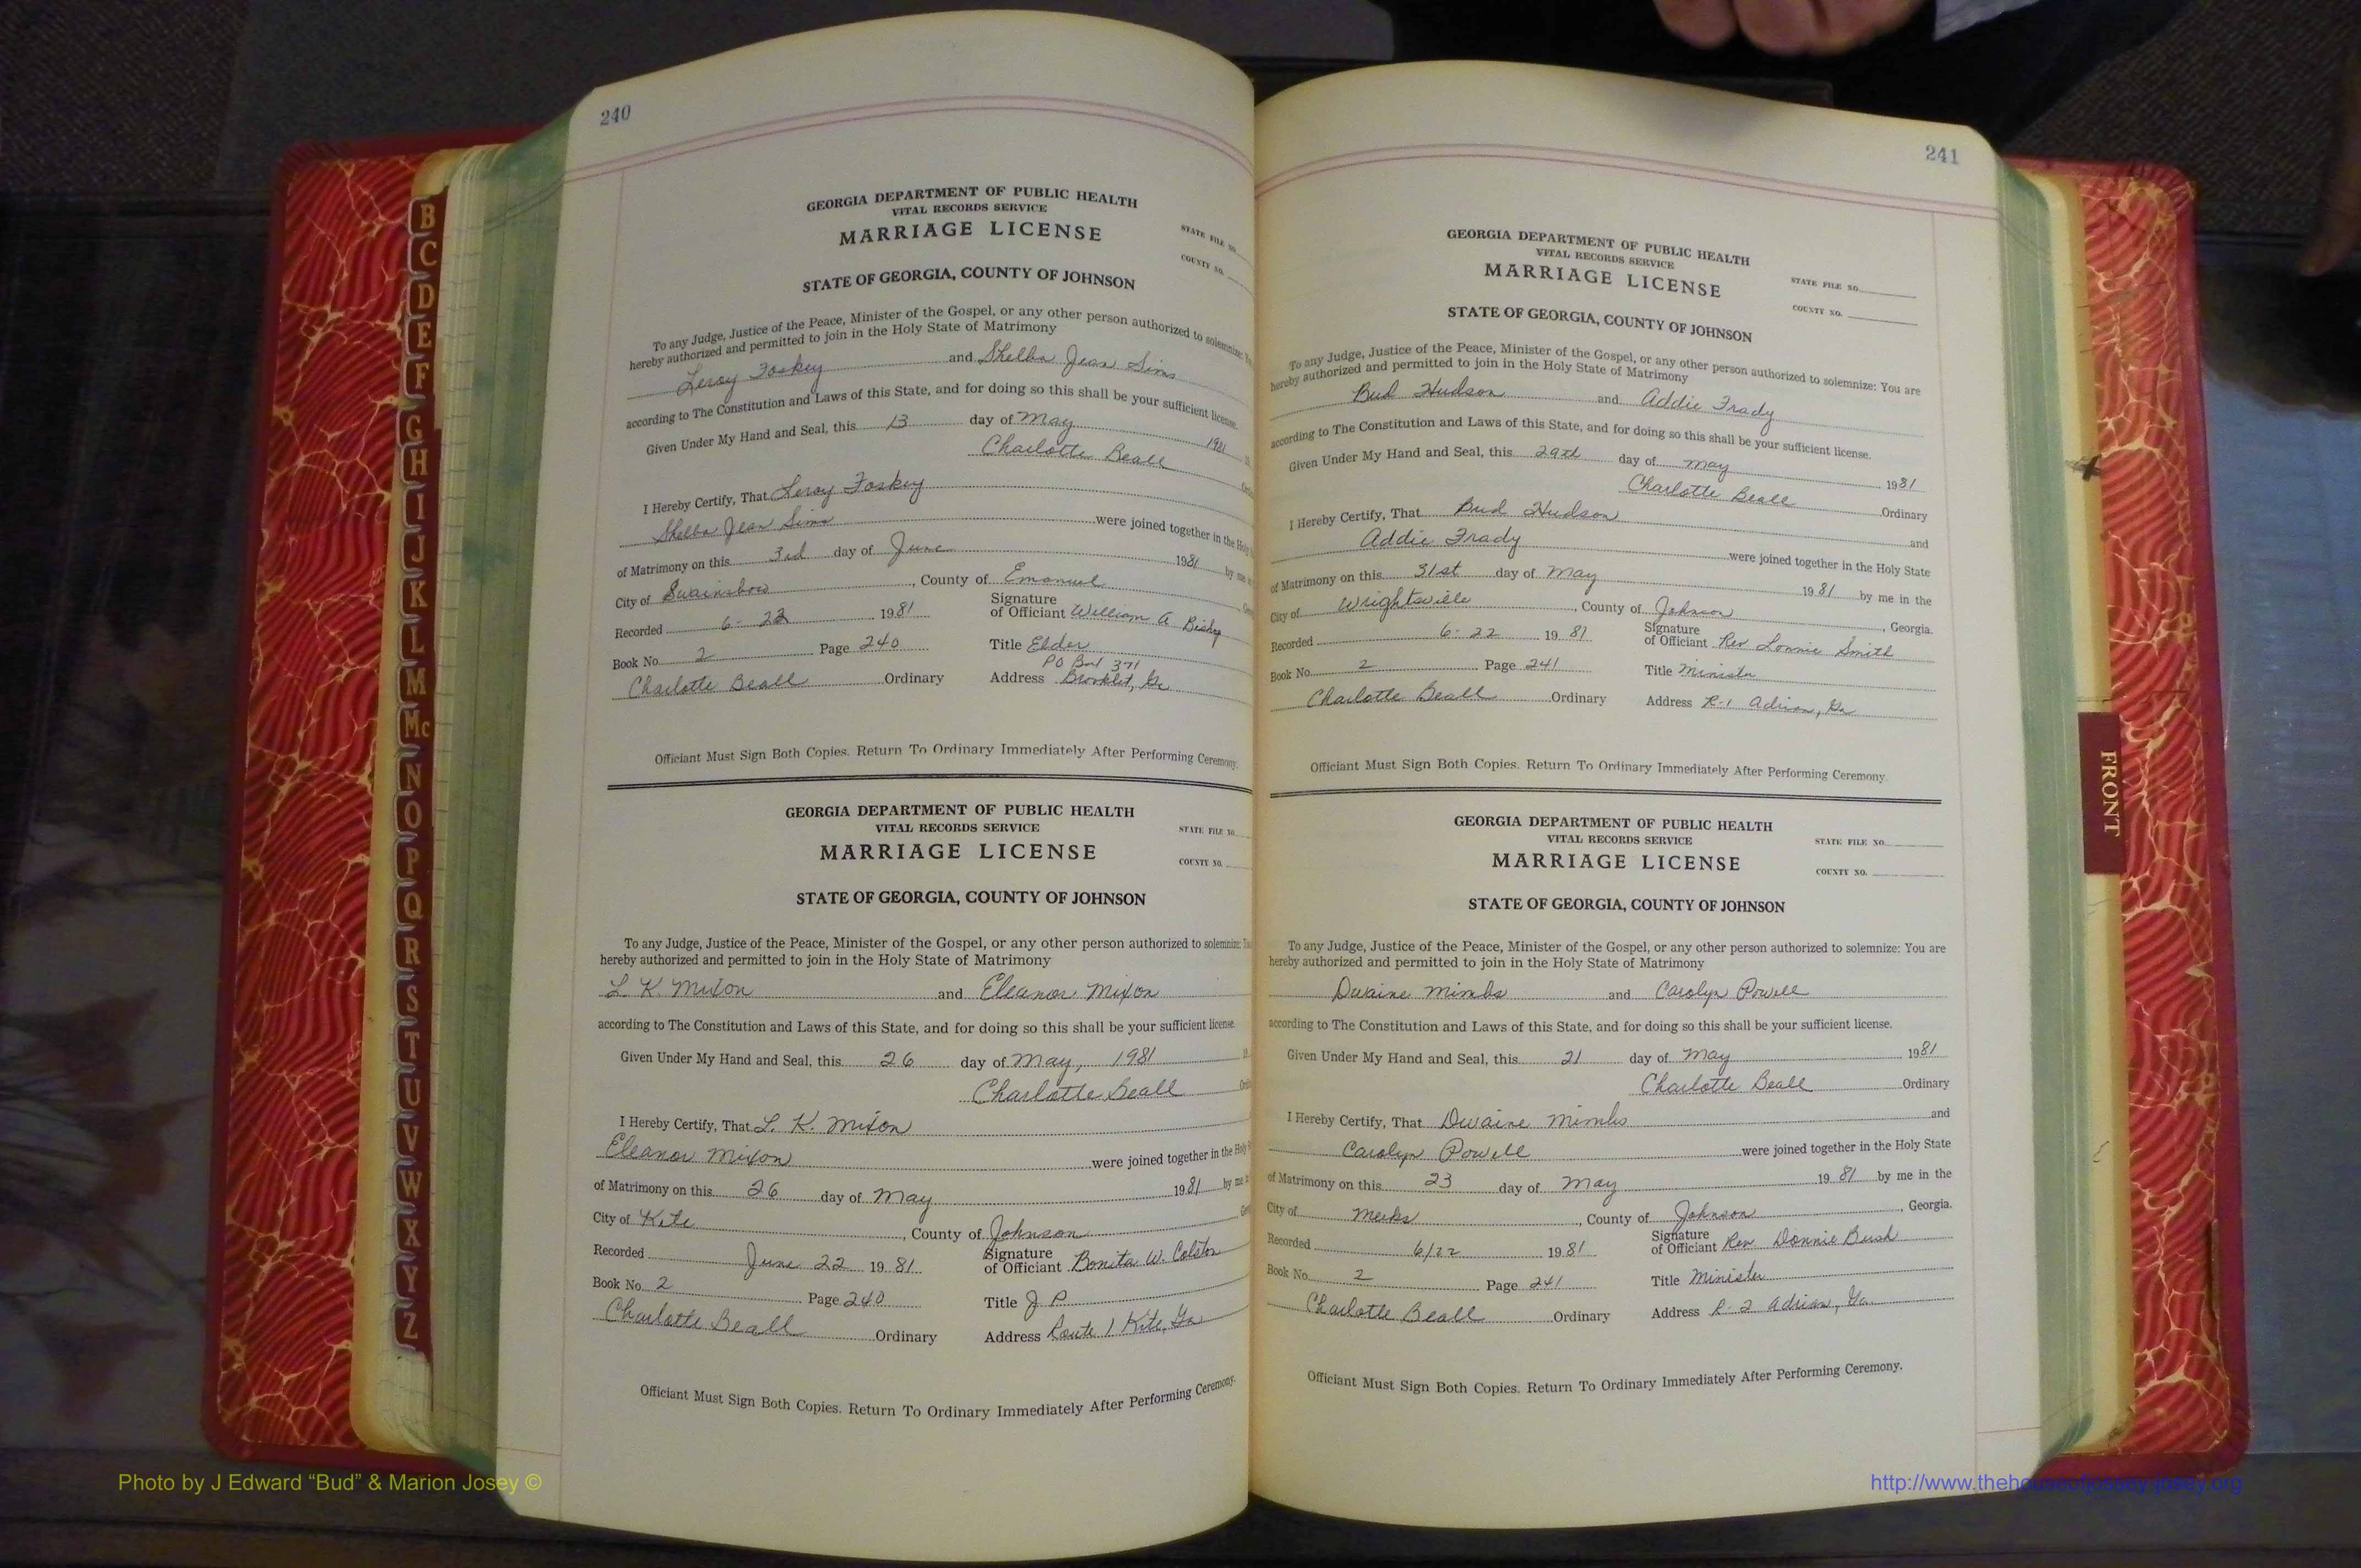 240
GEORGIA DEPARTMENT OF PUBLIC HEALTH
VITAL RECORDS SERVICE
MARRIAGE LICENSE
STATE FILE NO.
COUNTY NO.
STATE OF GEORGIA, COUNTY OF JOHNSON
To any Judge, Justice of the Peace, Minister of the Gospel, or any other person authorized to solemnize:
hereby authorized and permitted to join in the Holy State of Matrimony
Leroy Foskey and Shelba Jean Sims
according to The Constitution and Laws of this State, and for doing so this shall be your sufficient license.
Given Under My Hand and Seal, this 13 day of May 1981
Charlotte Beall
I Hereby Certify, That Leroy Foskey
Shelba Jean Sims were joined together in the Holy
of Matrimony on this 3rd day of June 1981 by me
City of Swainsboro, County of Emanuel
Recorded 6-22 1981 Signature of Officiant William A Bishop
Book No. 2 Page 240 Title Elder
PO Box 371
Charlotte Beall Ordinary Address Brooklet, Ga
Officiant Must Sign Both Copies. Return To Ordinary Immediately After Performing Ceremony.
GEORGIA DEPARTMENT OF PUBLIC HEALTH
VITAL RECORDS SERVICE
MARRIAGE LICENSE
STATE FILE NO.
COUNTY NO.
STATE OF GEORGIA, COUNTY OF JOHNSON
To any Judge, Justice of the Peace, Minister of the Gospel, or any other person authorized to solemnize:
hereby authorized and permitted to join in the Holy State of Matrimony
L. K. Mixon and Eleanor Mixon
according to The Constitution and Laws of this State, and for doing so this shall be your sufficient license.
Given Under My Hand and Seal, this 26 day of May, 1981
Charlotte Beall
I Hereby Certify, That L. K. Mixon
Eleanor Mixon were joined together in the Holy
of Matrimony on this 26 day of May 1981 by me
City of Kite, County of Johnson
Recorded June 22 1981 Signature of Officiant Bonita W. Colston
Book No. 2 Page 240 Title J P
Charlotte Beall Ordinary Address Route 1 Kite, Ga
Officiant Must Sign Both Copies. Return To Ordinary Immediately After Performing Ceremony.
241
GEORGIA DEPARTMENT OF PUBLIC HEALTH
VITAL RECORDS SERVICE
MARRIAGE LICENSE
STATE FILE NO.
COUNTY NO.
STATE OF GEORGIA, COUNTY OF JOHNSON
To any Judge, Justice of the Peace, Minister of the Gospel, or any other person authorized to solemnize: You are
hereby authorized and permitted to join in the Holy State of Matrimony
Bud Hudson and Addie Frady
according to The Constitution and Laws of this State, and for doing so this shall be your sufficient license.
Given Under My Hand and Seal, this 29th day of May 1981
Charlotte Beall Ordinary
I Hereby Certify, That Bud Hudson and
Addie Frady were joined together in the Holy State
of Matrimony on this 31st day of May 1981 by me in the
City of Wrightsville, County of Johnson, Georgia.
Recorded 6-22 1981 Signature of Officiant Rev Lonnie Smith
Book No. 2 Page 241 Title Minister
Charlotte Beall Ordinary Address R-1 Adrian, Ga
Officiant Must Sign Both Copies. Return To Ordinary Immediately After Performing Ceremony.
GEORGIA DEPARTMENT OF PUBLIC HEALTH
VITAL RECORDS SERVICE
MARRIAGE LICENSE
STATE FILE NO.
COUNTY NO.
STATE OF GEORGIA, COUNTY OF JOHNSON
To any Judge, Justice of the Peace, Minister of the Gospel, or any other person authorized to solemnize: You are
hereby authorized and permitted to join in the Holy State of Matrimony
Dwaine Mimbs and Carolyn Powell
according to The Constitution and Laws of this State, and for doing so this shall be your sufficient license.
Given Under My Hand and Seal, this 21 day of May 1981
Charlotte Beall Ordinary
I Hereby Certify, That Dwaine Mimbs and
Carolyn Powell were joined together in the Holy State
of Matrimony on this 23 day of May 1981 by me in the
City of Meeks, County of Johnson, Georgia.
Recorded 6/22 1981 Signature of Officiant Rev. Donnie Bush
Book No. 2 Page 241 Title Minister
Charlotte Beall Ordinary Address R-2 Adrian, Ga.
Officiant Must Sign Both Copies. Return To Ordinary Immediately After Performing Ceremony.
B
C
D
E
F
G
H
I
J
K
L
M
Mc
N
O
P
Q
R
S
T
U
V
W
X
Y
Z
FRONT
Photo by J Edward “Bud” & Marion Josey ©
http://www.thehouseofjossey-josey.org